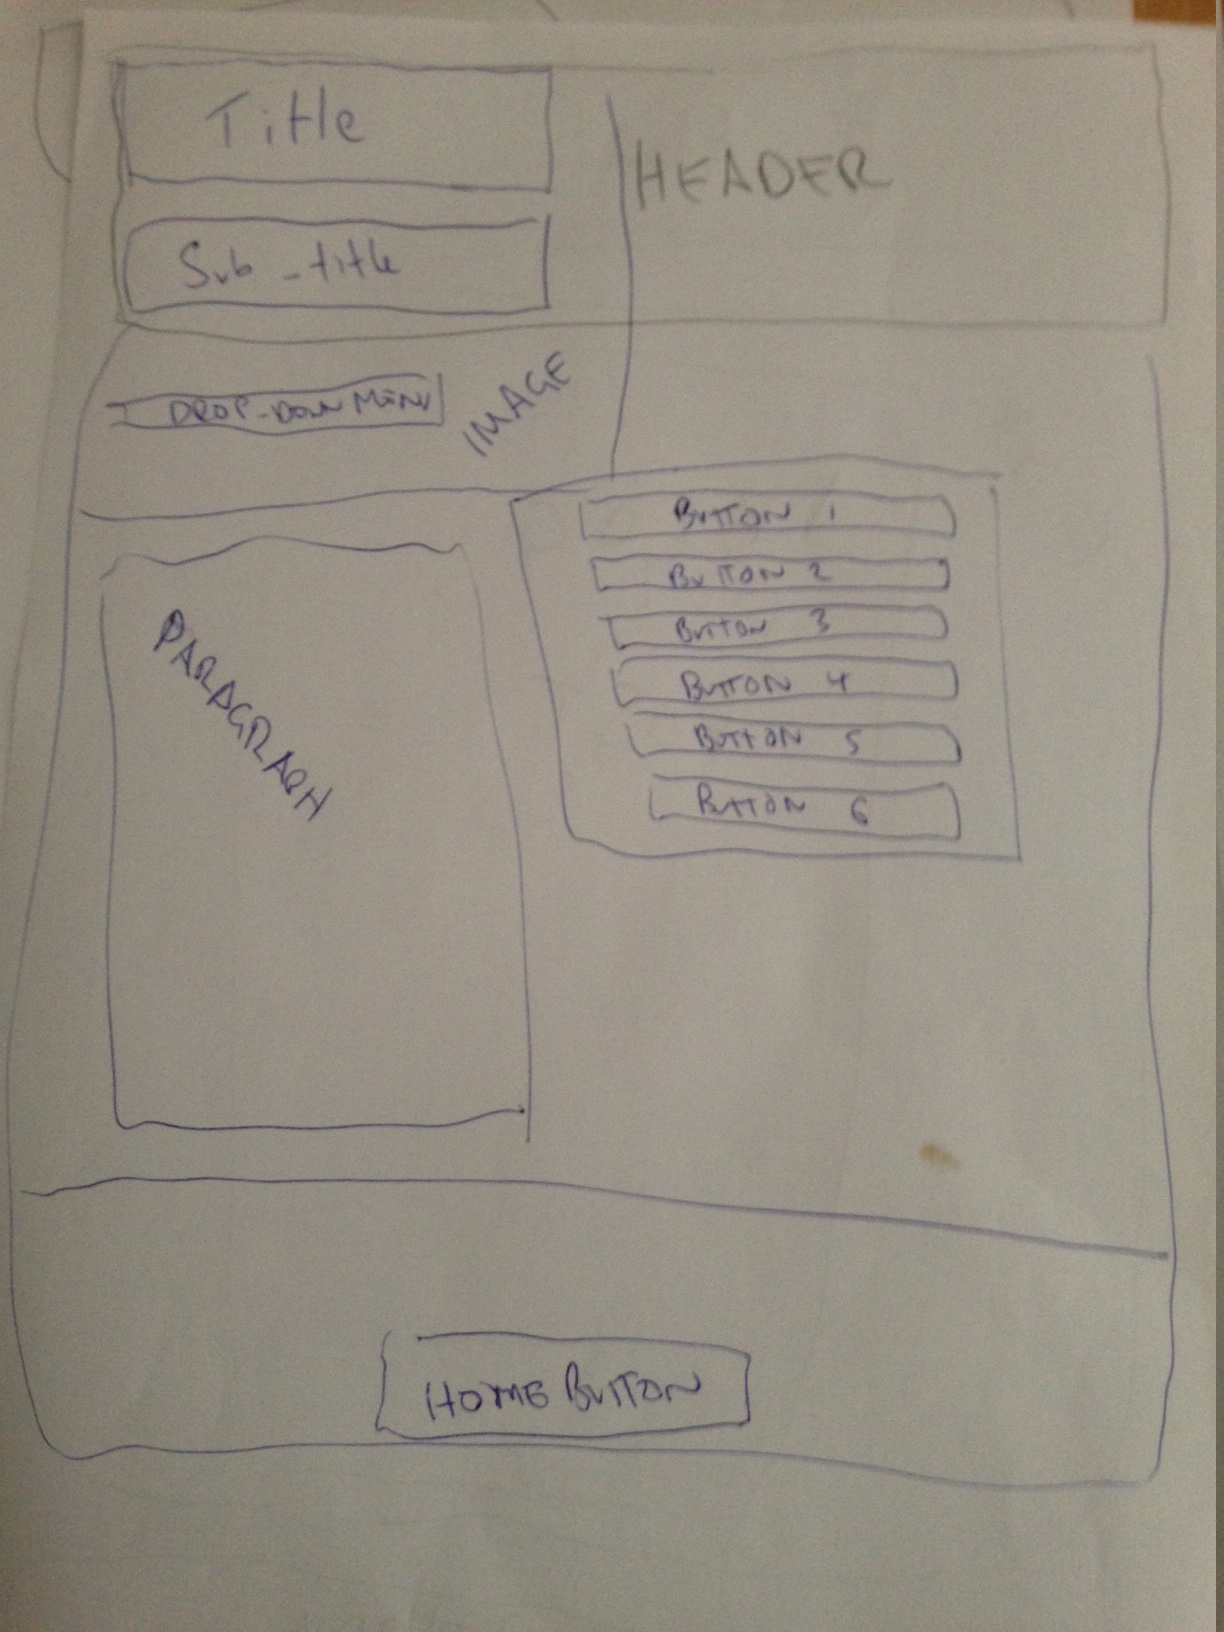 Title
HEADER
Sub-title
DROP-DOWN MENU
IMAGE
BUTTON 1
BUTTON 2
BUTTON 3
BUTTON 4
BUTTON 5
BUTTON 6
PARAGRAPH
HOME BUTTON